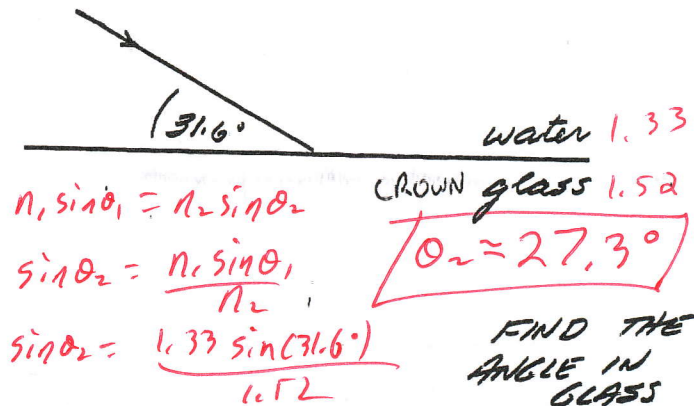 31.6°
water 1.33
CROWN glass 1.52
n₁ sinθ₁ = n₂ sinθ₂
θ₂ ≈ 27.3°
sinθ₂ = n₁ sinθ₁
n₂
sinθ₂ = 1.33 sin(31.6°)
1.52
FIND THE
ANGLE IN
GLASS